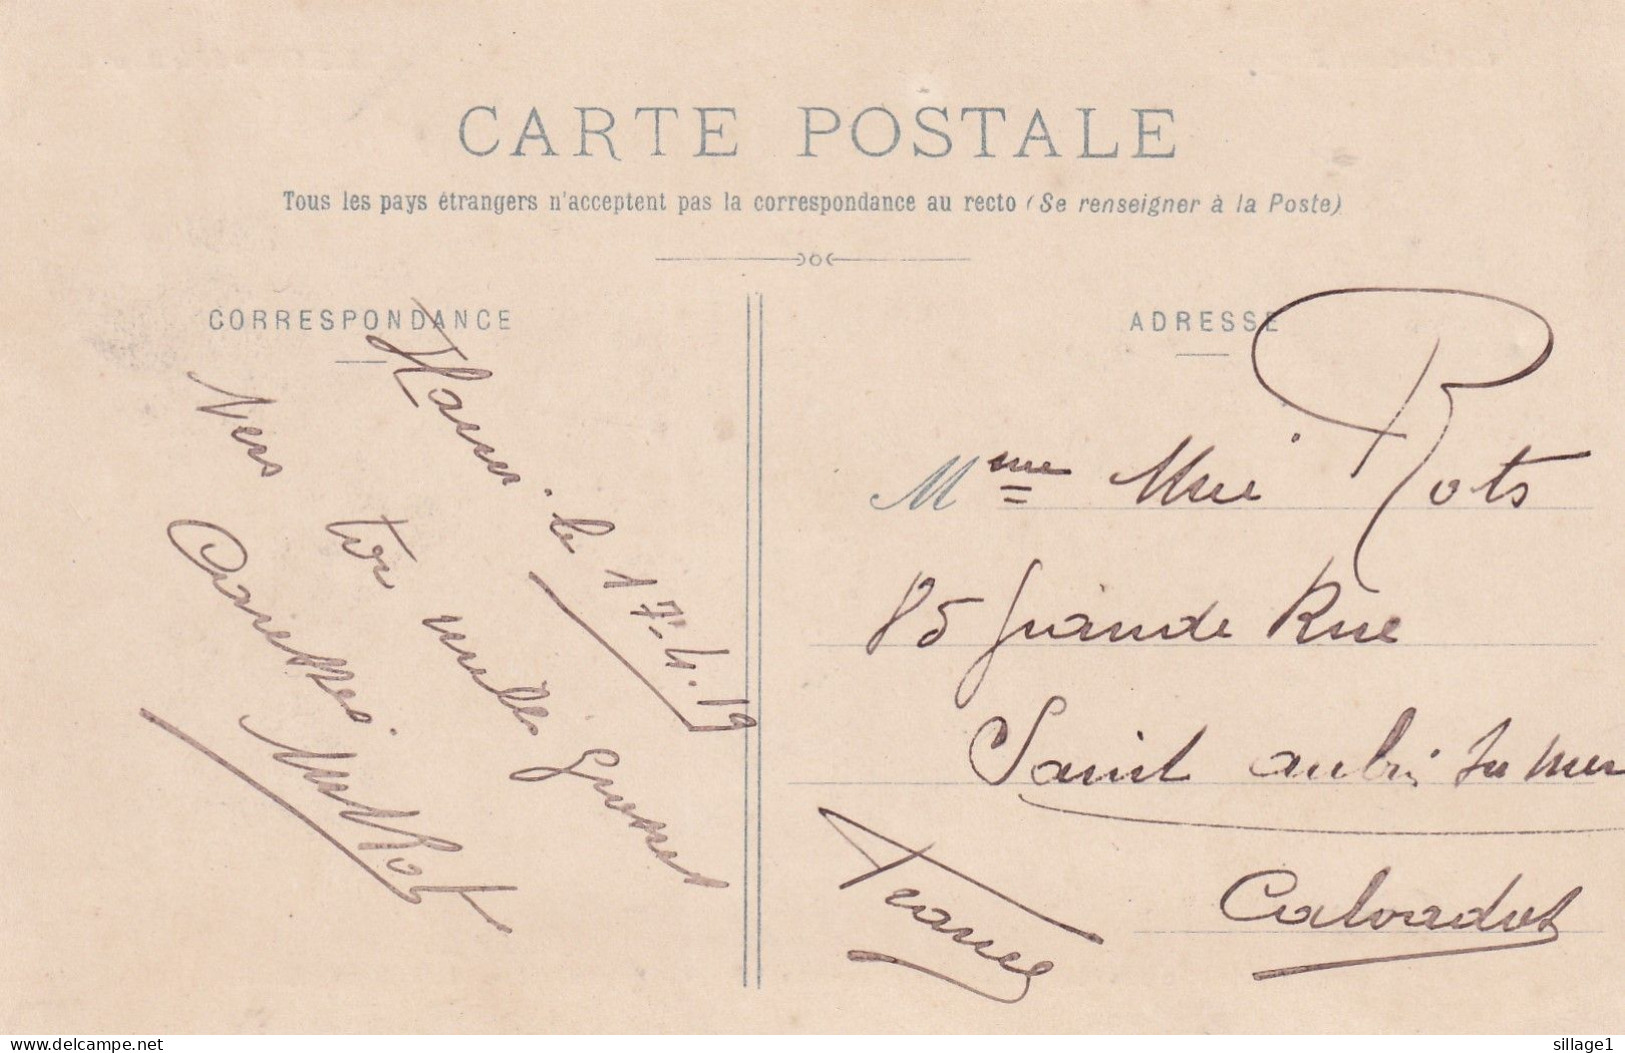 CARTE POSTALE
Tous les pays étrangers n'acceptent pas la correspondance au recto (Se renseigner à la Poste)
CORRESPONDANCE
ADRESSE
le 17.4.19
Vers toi mille grosses
Caresses
Mme Rots
85 Grande Rue
Saint aubin su mer
Calvados
France
delcampe.net
sillage1